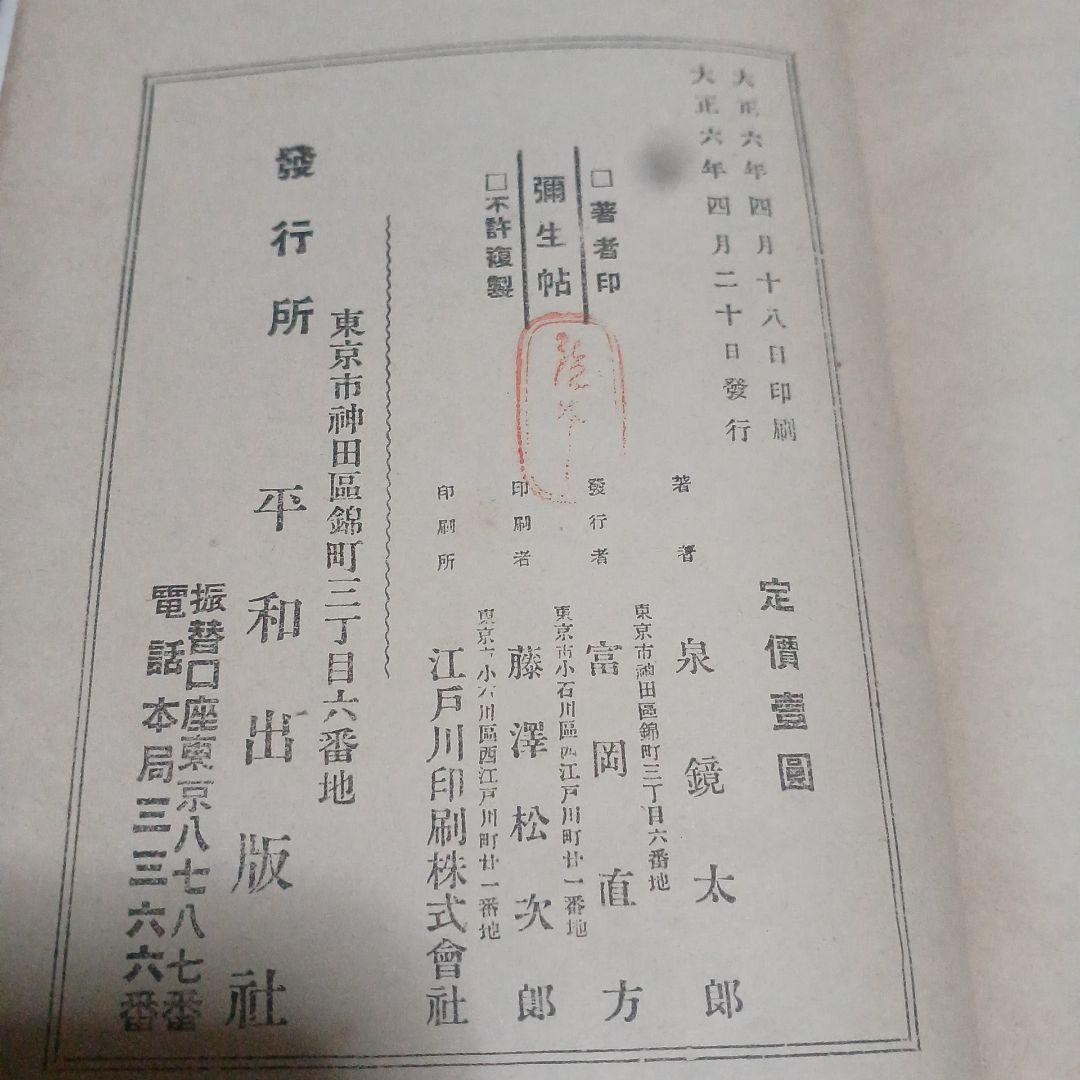 大正六年四月十八日印刷
大正六年四月二十日發行
定價壹圓
□著者印
彌生帖
□不許複製
著者 泉鏡太郎
東京市神田區錦町三丁目六番地
發行者 富岡直方
東京市小石川區西江戸川町廿一番地
印刷者 藤澤松次郎
東京市小石川區西江戸川町廿一番地
印刷所 江戸川印刷株式會社
東京市神田區錦町三丁目六番地
發行所 平和出版社
振替口座東京八七八七番
電話本局三三六六番